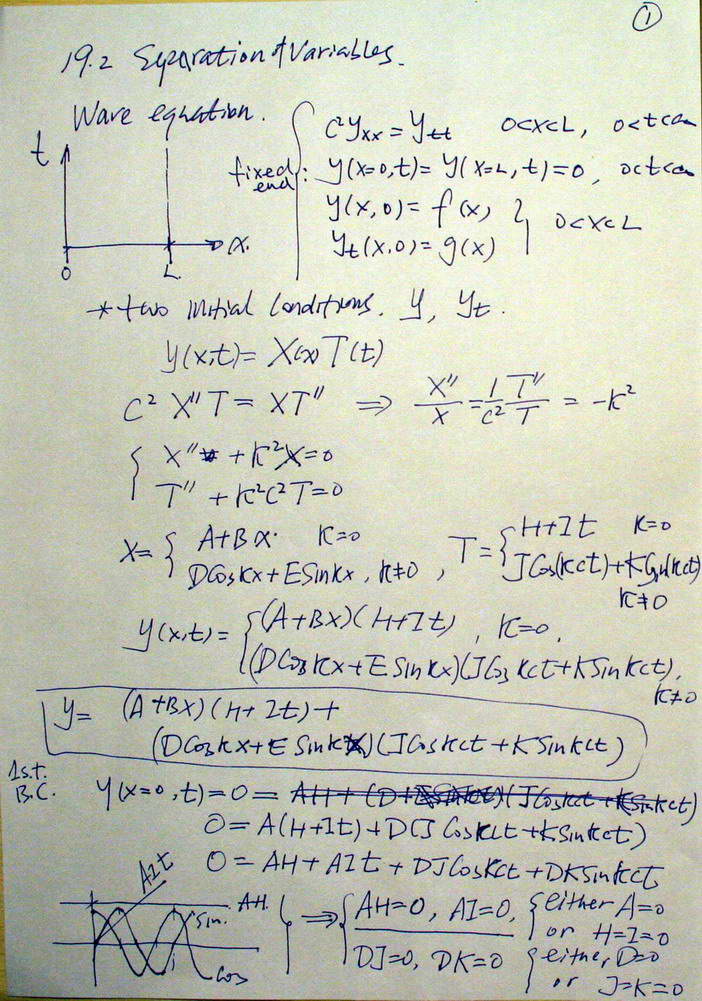 ①
19.2 Separation of Variables.
Wave equation.
c² yxx = ytt   0<x<L, 0<t<∞
t
fixed end: y(x=0,t) = y(x=L,t) = 0, 0<t<∞
y(x,0) = f(x)
yt(x,0) = g(x) } 0<x<L
x.
0   L
* two initial conditions. y, yt.
y(x,t) = X(x) T(t)
c² X''T = XT'' ⇒ X''/X = 1/c² T''/T = -κ²
{ X'' + κ²X = 0
T'' + κ²c²T = 0
X = { A+Bx. κ=0
DCosκx + ESinκx, κ≠0
, T = { H+It κ=0
JCos(κct) + KSin(κct)
κ≠0
y(x,t) = { (A+Bx)(H+It), κ=0,
(DCosκx + ESinκx)(JCosκct + KSinκct),
κ≠0
y = (A+Bx)(H+It) +
(DCosκx + ESinκx)(JCosκct + KSinκct)
1st.
B.C. y(x=0,t) = 0 =
0 = A(H+It) + D(JCosκct + KSinκct)
0 = AH + AIt + DJCosκct + DKSinκct
AIt
AH.
Sin.
Cos
⇒ { AH=0, AI=0, { either A=0
or H=I=0
DJ=0, DK=0 { either D=0
or J=K=0